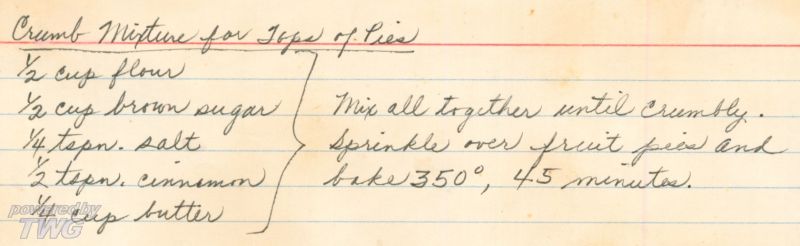 Crumb Mixture for Tops of Pies
1/2 cup flour
1/2 cup brown sugar
1/4 tspn. salt
1/2 tspn. cinnamon
1/4 cup butter
Mix all together until crumbly.
Sprinkle over fruit pies and
bake 350°, 45 minutes.
powered by
TWG